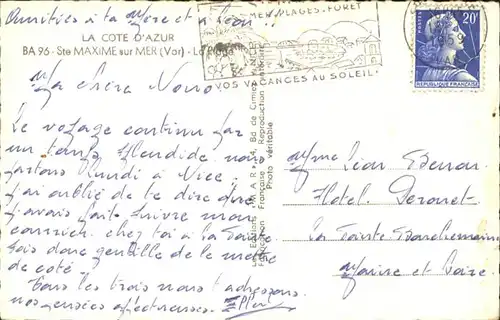 Amitiés à ta Mère et à Léon !!
LA COTE D'AZUR
BA 96 - Ste MAXIME sur MER (Var) - La Plage
MER, PLAGES, FORET
VOS VACANCES AU SOLEIL!
POSTES
20F
REPUBLIQUE FRANÇAISE
Ma chère Nono
Le voyage continu par
un temps splendide. nous
partons lundi à Nice.
J'ai oublié de te dire que
j'avais fait suivre mon
courrier chez toi à la
sois donc gentille de le mettre
de coté.
Tous les trois nous t'adressons
nos pensées affectueuses.
Editions "MAR", Bd de Cimiez, NICE
Fabrication Française - Reproduction interdite
Photo véritable
Mme Léon
Hotel
La
Maine et Loire.